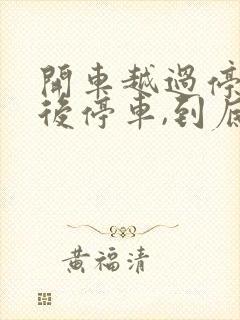 開車越過停
後停車,到底
黃福清